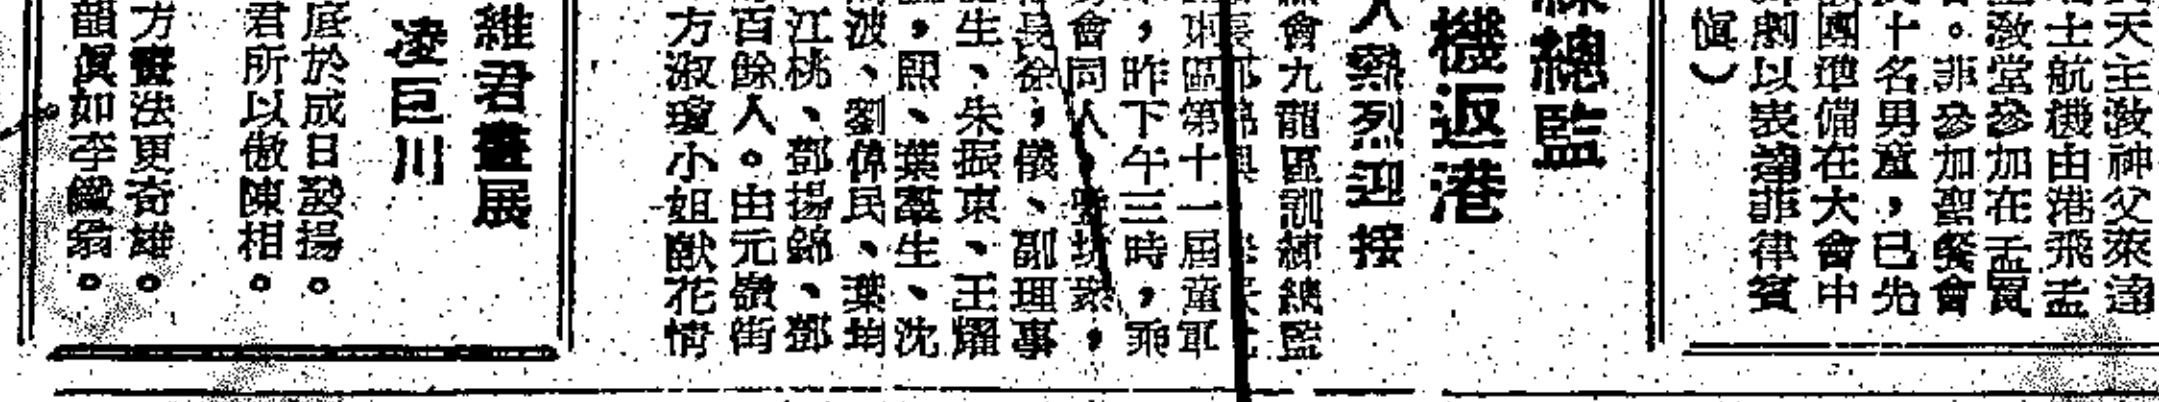 天主教神父萊達
士航機由港飛孟
教堂參加在孟買
。菲參加聖餐會
十名男童，已先
團準備在大會中
劇以表達菲律賓
愼）
練總監
機返港
人熱烈迎接
會九龍區訓練總監
區第十一屆童軍
，昨下午三時，乘
會同人，
長徐，儀、副理事
生、朱振東、王耀
，熙、葉羣生、沈
波、劉偉民、葉均
江桃、鄧揚錦、鄧
百餘人。由元嶺街
方淑瓊小姐獻花情
維君畫展
凌巨川
庭於成日發揚。
君所以傲陳相。
方寶法更奇雄。
韻眞如李鐵翁。